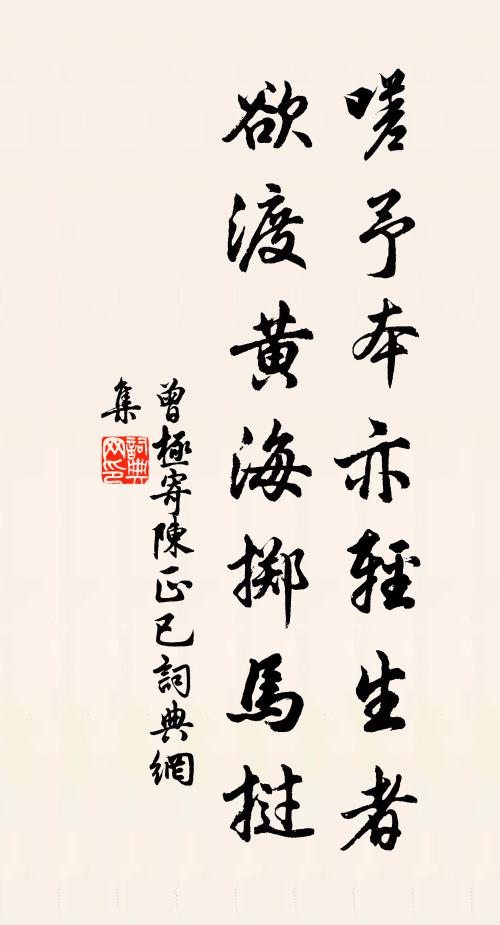 嗟予本亦輕生者
欲渡黃海擲馬撾
曾極寄陳正已詞典網
集
詞典網印